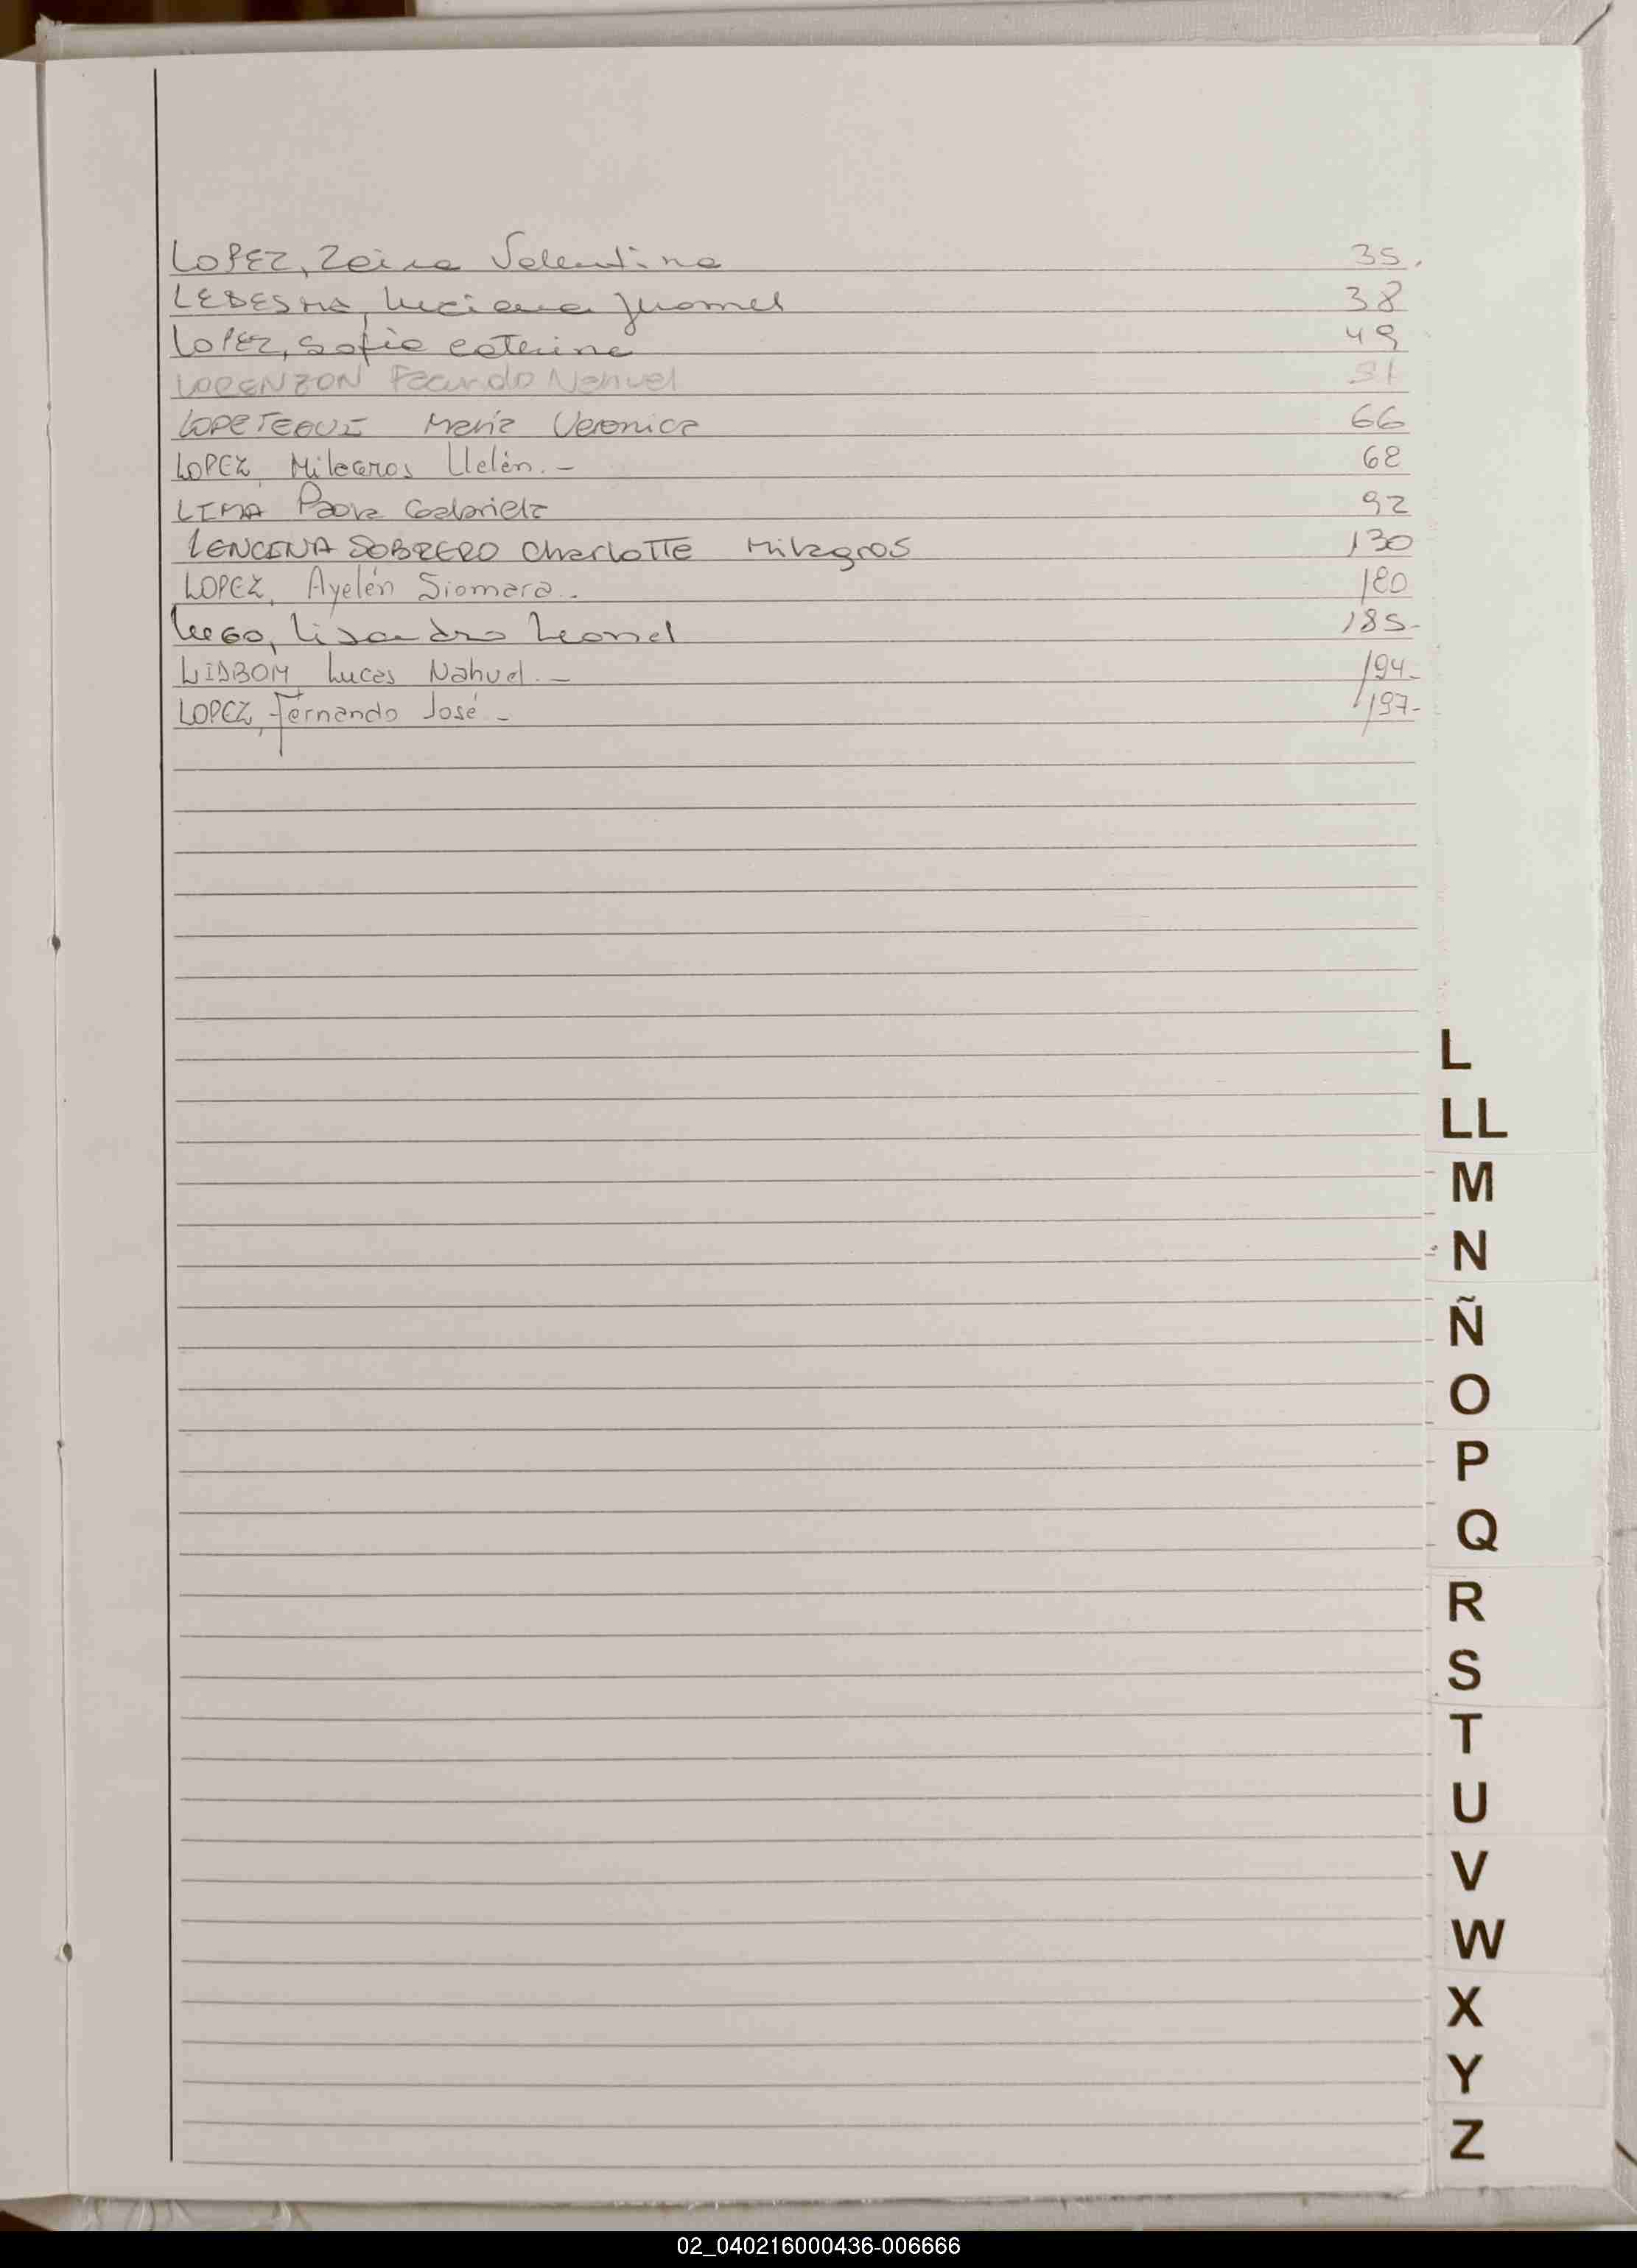 LOPEZ, Zaira Valentina 35.
LEDESMA, Luciana 38
LOPEZ, Sofia Caterina 49
LORENZON Facundo Nahuel 51
LOPETEGUI María Veronica 66
LOPEZ, Milagros Uelén.- 68
LIMA Paola Gabriela 92
LENCINA SOBRERO CharloTTe Milagros 130
LOPEZ, Ayelén Siomara.- 180
LUGO, Lisandro Leonel 185-
Lucas Nahuel.- 194-
LOPEZ, Fernando José- 197-
L
LL
M
N
Ñ
O
P
Q
R
S
T
U
V
W
X
Y
Z
02_040216000436-006666